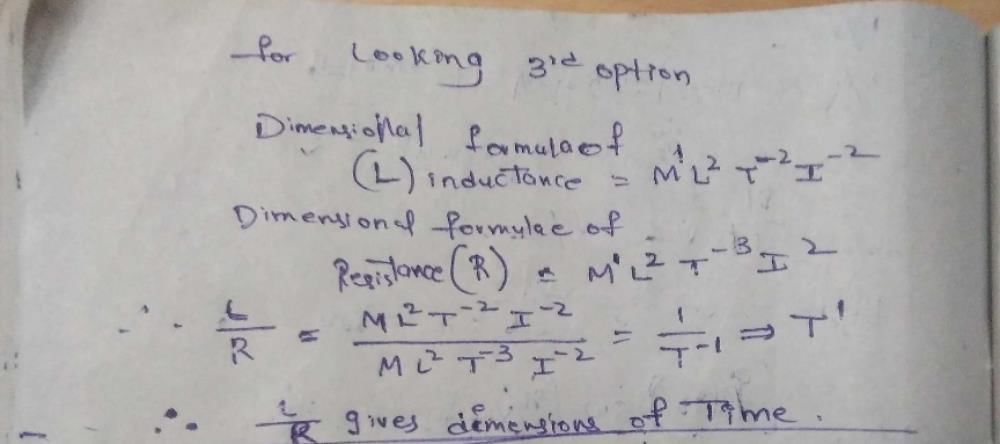 for Looking 3rd option
Dimensional formulae of
(L) inductance = M¹L² T⁻² I⁻²
Dimensional formulae of
Resistance (R) = M¹L² T⁻³ I²
∴ L/R = ML²T⁻²I⁻² / ML²T⁻³I⁻² = 1/T⁻¹ ⇒ T¹
∴ L/R gives dimensions of Time.